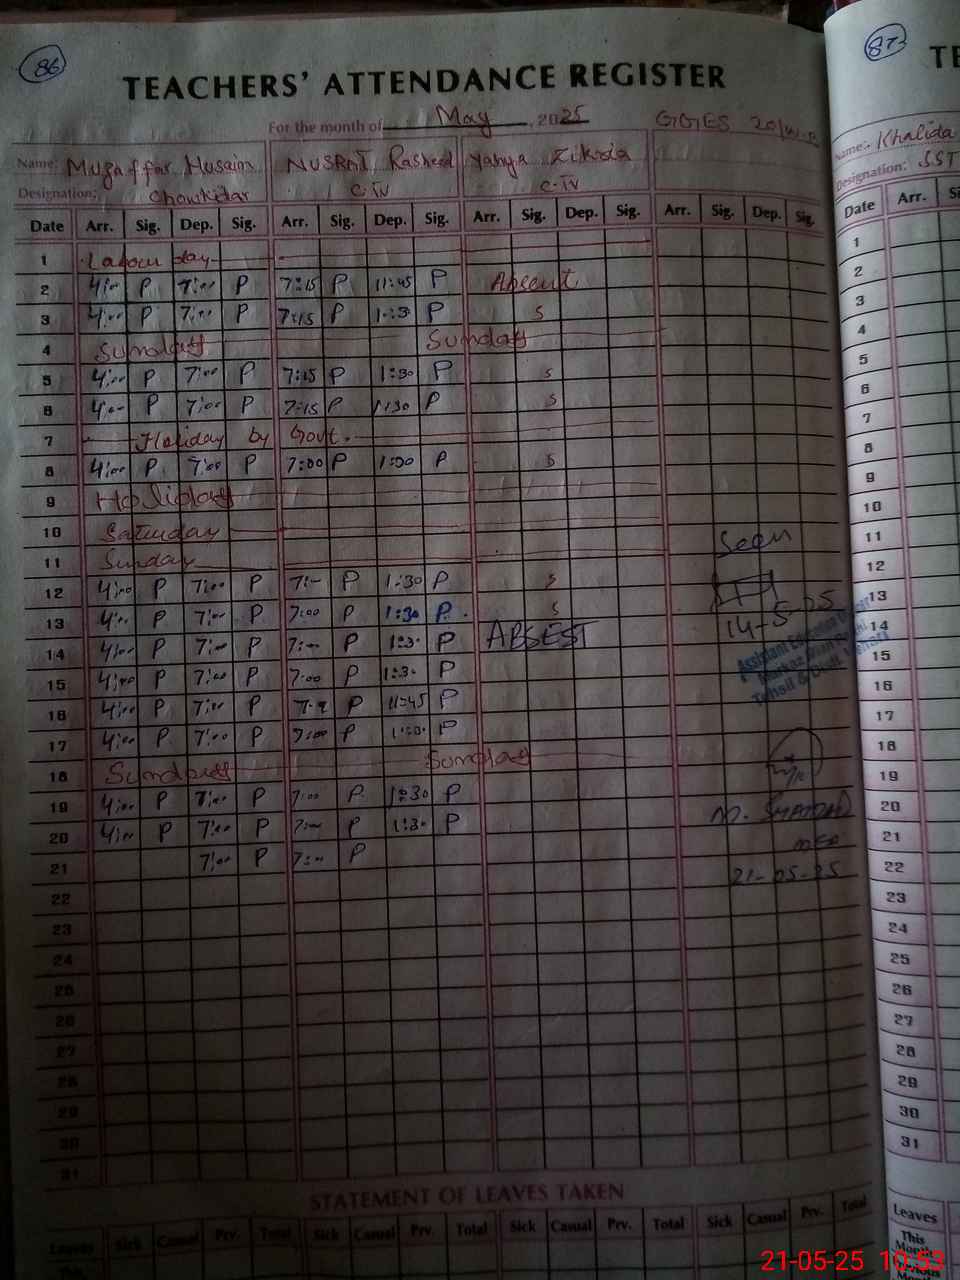 86
TEACHERS' ATTENDANCE REGISTER
For the month of May, 2025 GGES
Name: Muzaffar Husain NUSRAT Rasheed Yahya Zikria
Designation: Chowkidar C-IV C-IV
Date Arr. Sig. Dep. Sig. Arr. Sig. Dep. Sig. Arr. Sig. Dep. Sig. Arr. Sig. Dep. Sig.
1 Labour day
2 4:00 P 7:00 P 7:15 P 11:45 P Absent
3 4:00 P 7:00 P 7:15 P 1:30 P S
4 Sunday Sunday
5 4:00 P 7:00 P 7:15 P 1:30 P S
6 4:00 P 7:00 P 7:15 P 1:30 P S
7 Holiday by Govt.
8 4:00 P 7:00 P 7:00 P 1:30 P S
9 Holiday
10 Saturday
11 Sunday
12 4:00 P 7:00 P 7:00 P 1:30 P S
13 4:00 P 7:00 P 7:00 P 1:30 P S
14 4:00 P 7:00 P 7:00 P 1:30 P ABSEST
15 4:00 P 7:00 P 7:00 P 1:30 P
16 4:00 P 7:00 P P 11:45 P
17 4:00 P 7:00 P 7:00 P 1:30 P
18 Sunday Sunday
19 4:00 P 7:00 P 7:00 P 1:30 P
20 4:00 P 7:00 P 7:00 P 1:30 P
21 7:00 P 7:00 P
22
23
24
25
26
27
28
29
30
31
Seen
14-5-25
Assistant Education Officer
Markaz
Tehsil & Distt. Vehari
M.
21-05-25
STATEMENT OF LEAVES TAKEN
Leaves Sick Casual Prv. Total Sick Casual Prv. Total Sick Casual Prv. Total Sick Casual Prv. Total
87
TE
Name:- Khalida
Designation: SST
Date Arr. Si
1
2
3
4
5
6
7
8
9
10
11
12
13
14
15
16
17
18
19
20
21
22
23
24
25
26
27
28
29
30
31
Leaves
This
Month
21-05-25 10:53